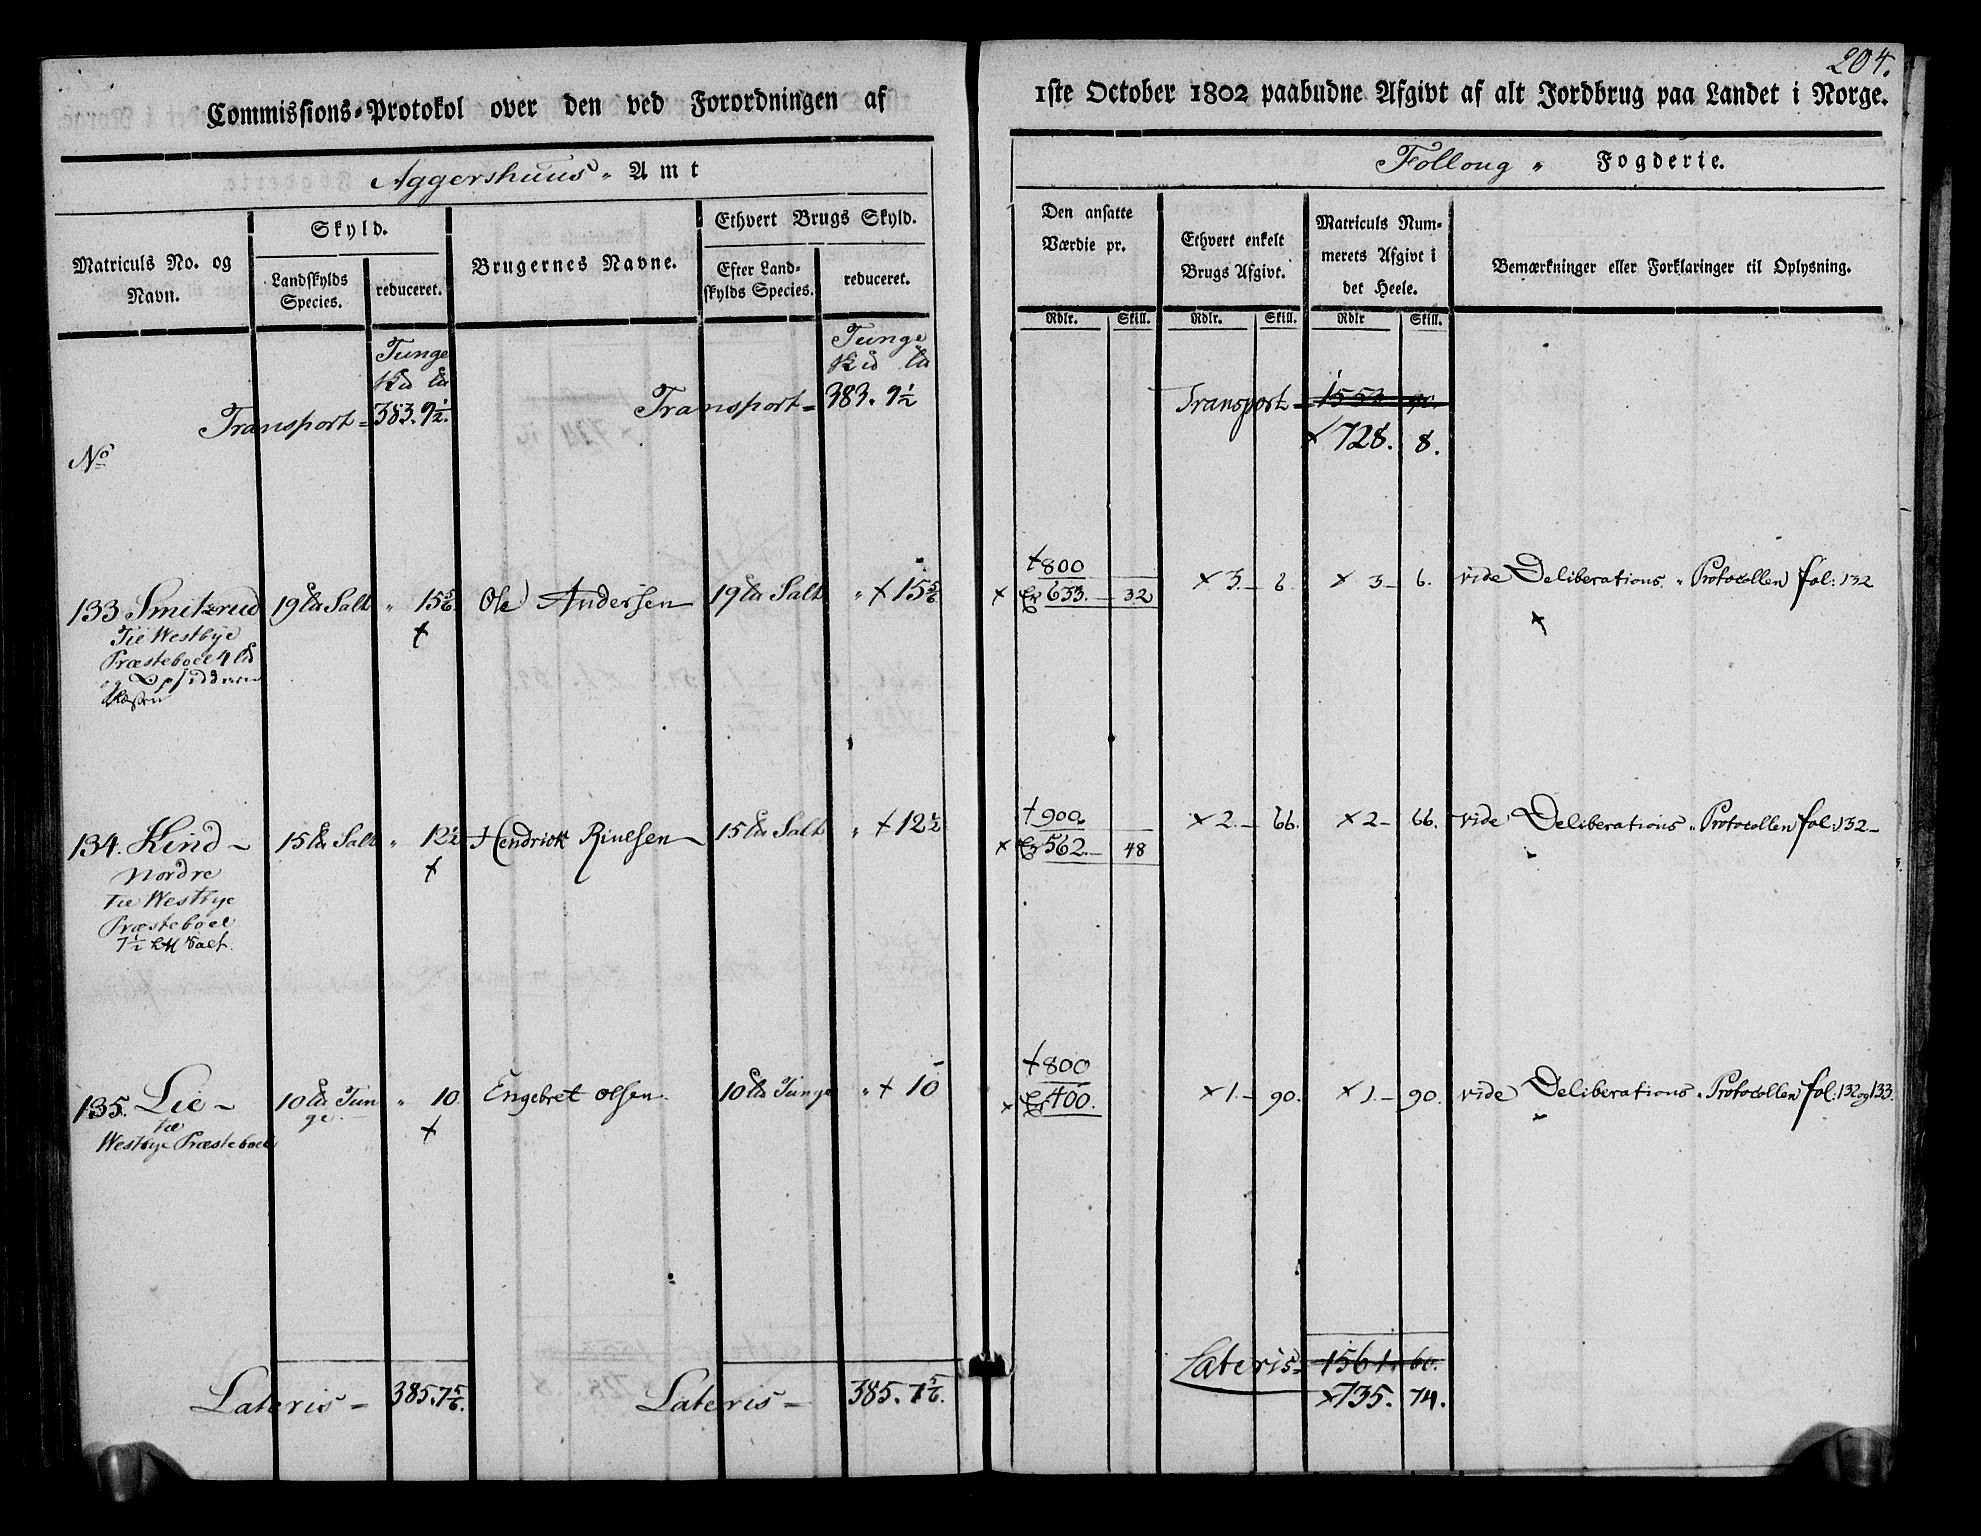 204.
Commissions-Protokol over den ved Forordningen af 1ste October 1802 paabudne Afgivt af alt Jordbrug paa Landet i Norge.
Aggershuus Amt
Folloug Fogderie.
Matriculs No. og Navn.
Skyld.
Landskylds Species.
reduceret.
Brugernes Navne.
Ethvert Brugs Skyld.
Efter Landskylds Species.
reduceret.
Den ansatte Værdie pr.
Ethvert enkelt Brugs Afgivt.
Matriculs Nummerets Afgivt i det Heele.
Bemærkninger eller Forklaringer til Oplysning.
Rdlr. Skill. Rdlr. Skill. Rdlr Skill.
Tunge
Tunge
Transport = 383. 9½.
Transport = 383. 9½
Transport = 1553 90.
× 728. 8.
No
133 Smitzrud 19 ℔ Salt " 15 5/6 Ole Andersen 19 ℔ Salt " × 15 5/6 × 800 × 3 - 6. × 3 - 6. vide Deliberations Protocollen fol: 132
× Er 633. - 32
Til Westbye
Præsteboel 4
og
134. Kind - 15 ℔ Salt " 12½ Hendrick 15 ℔ Salt " × 12½ × 900. × 2. - 66. × 2 - 66. vide Deliberations Protocollen fol: 132 -
× Er 562. - 48
Nordre
Til Westbye
Præsteboel
7½ Salt.
135. Lie - 10 ℔ Tunge " 10. Engebret Olsen. 10 ℔ Tunge " × 10 × 800 × 1. - 90. × 1. - 90. vide Deliberations Protocollen fol: 132 og 133.
× Er 400.
til
Westbye Præsteboel
Lateris - 385. 7 5/6.
Lateris - 385. 7 5/6.
Lateris = 1561. 60.
× 735. 74.